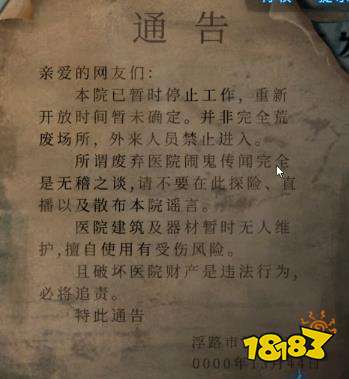 通告
亲爱的网友们：
本院已暂时停止工作，重新
开放时间暂未确定。并非完全荒
废场所，外来人员禁止进入。
所谓废弃医院闹鬼传闻完全
是无稽之谈，请不要在此探险、直
播以及散布本院谣言。
医院建筑及器材暂时无人维
护，擅自使用有受伤风险。
且破坏医院财产是违法行为，
必将追责。
特此通告
浮路市
0000年13月44日
18183